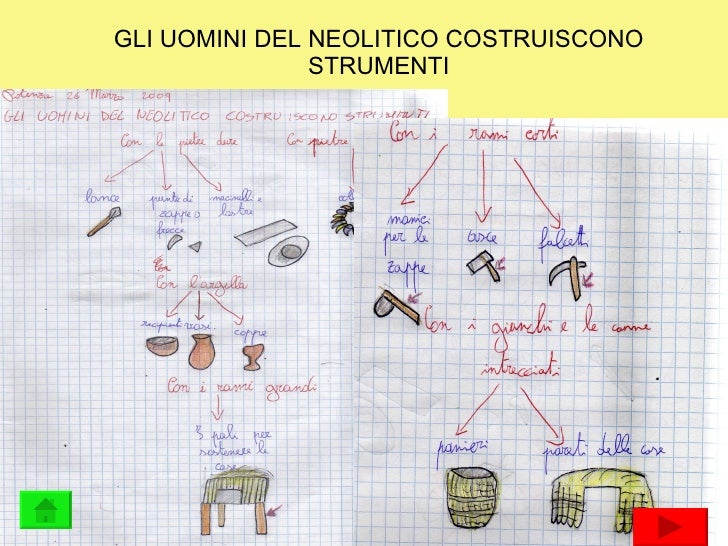 GLI UOMINI DEL NEOLITICO COSTRUISCONO
STRUMENTI
Potenza 26 Marzo 2009
GLI UOMINI DEL NEOLITICO COSTRUISCONO STRUMENTI
Con le pietre dure
Con pietre
lance
punte di
zappe o
frecce
macinelli e
lastre
Con l'argilla
recipienti
vasi.
coppe
Con i rami grandi
pali per
sostenere le
case
Con i rami corti
manici
per le
zappe
asce
falcetti
Con i giunchi e le canne
intrecciati
panieri
pareti delle case